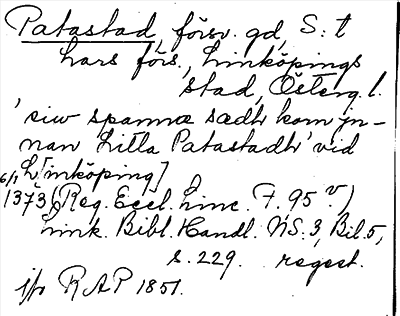 Patastad, försv. gd, S:t
Larsförs., Linköpings
stad, Österg. l.
'siw spannæ sædh kom in-
nan Litla Patastadh' vid
L[inköping]
6/1 1373 (Reg. Eccl. Linc. F. 95 v.)
Link. Bibl. Handl. NS. 3, Bil. 5,
s. 229. regest.
jfr RAP 1851.